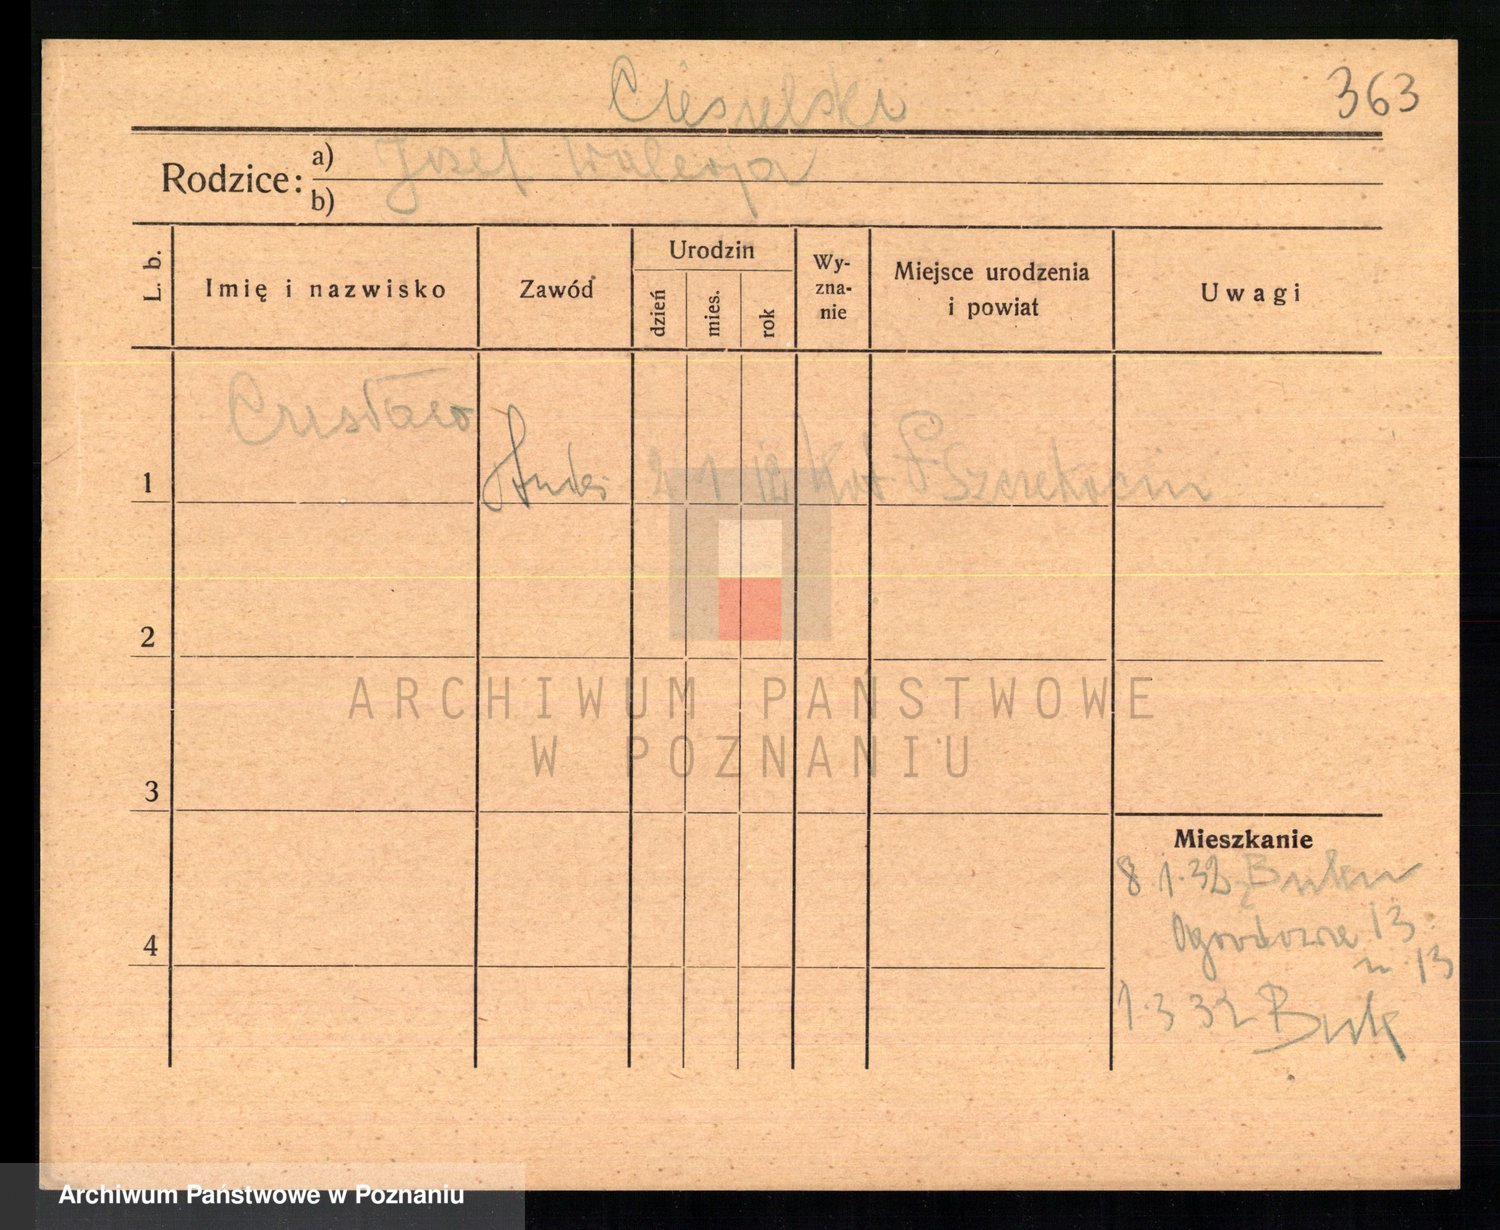 Ciesielski
363
Rodzice:
a)
b)
Józef Walerja
L. b.
Imię i nazwisko
Zawód
Urodzin
dzień
mies.
rok
Wy-
zna-
nie
Miejsce urodzenia
i powiat
Uwagi
1
2 1 12 kat Szczekocin
2
3
4
Mieszkanie
8.1.32 z Buku
Ogrodowa 13
m. 13
1.3 32 Buk
ARCHIWUM PAŃSTWOWE
W POZNANIU
Archiwum Państwowe w Poznaniu